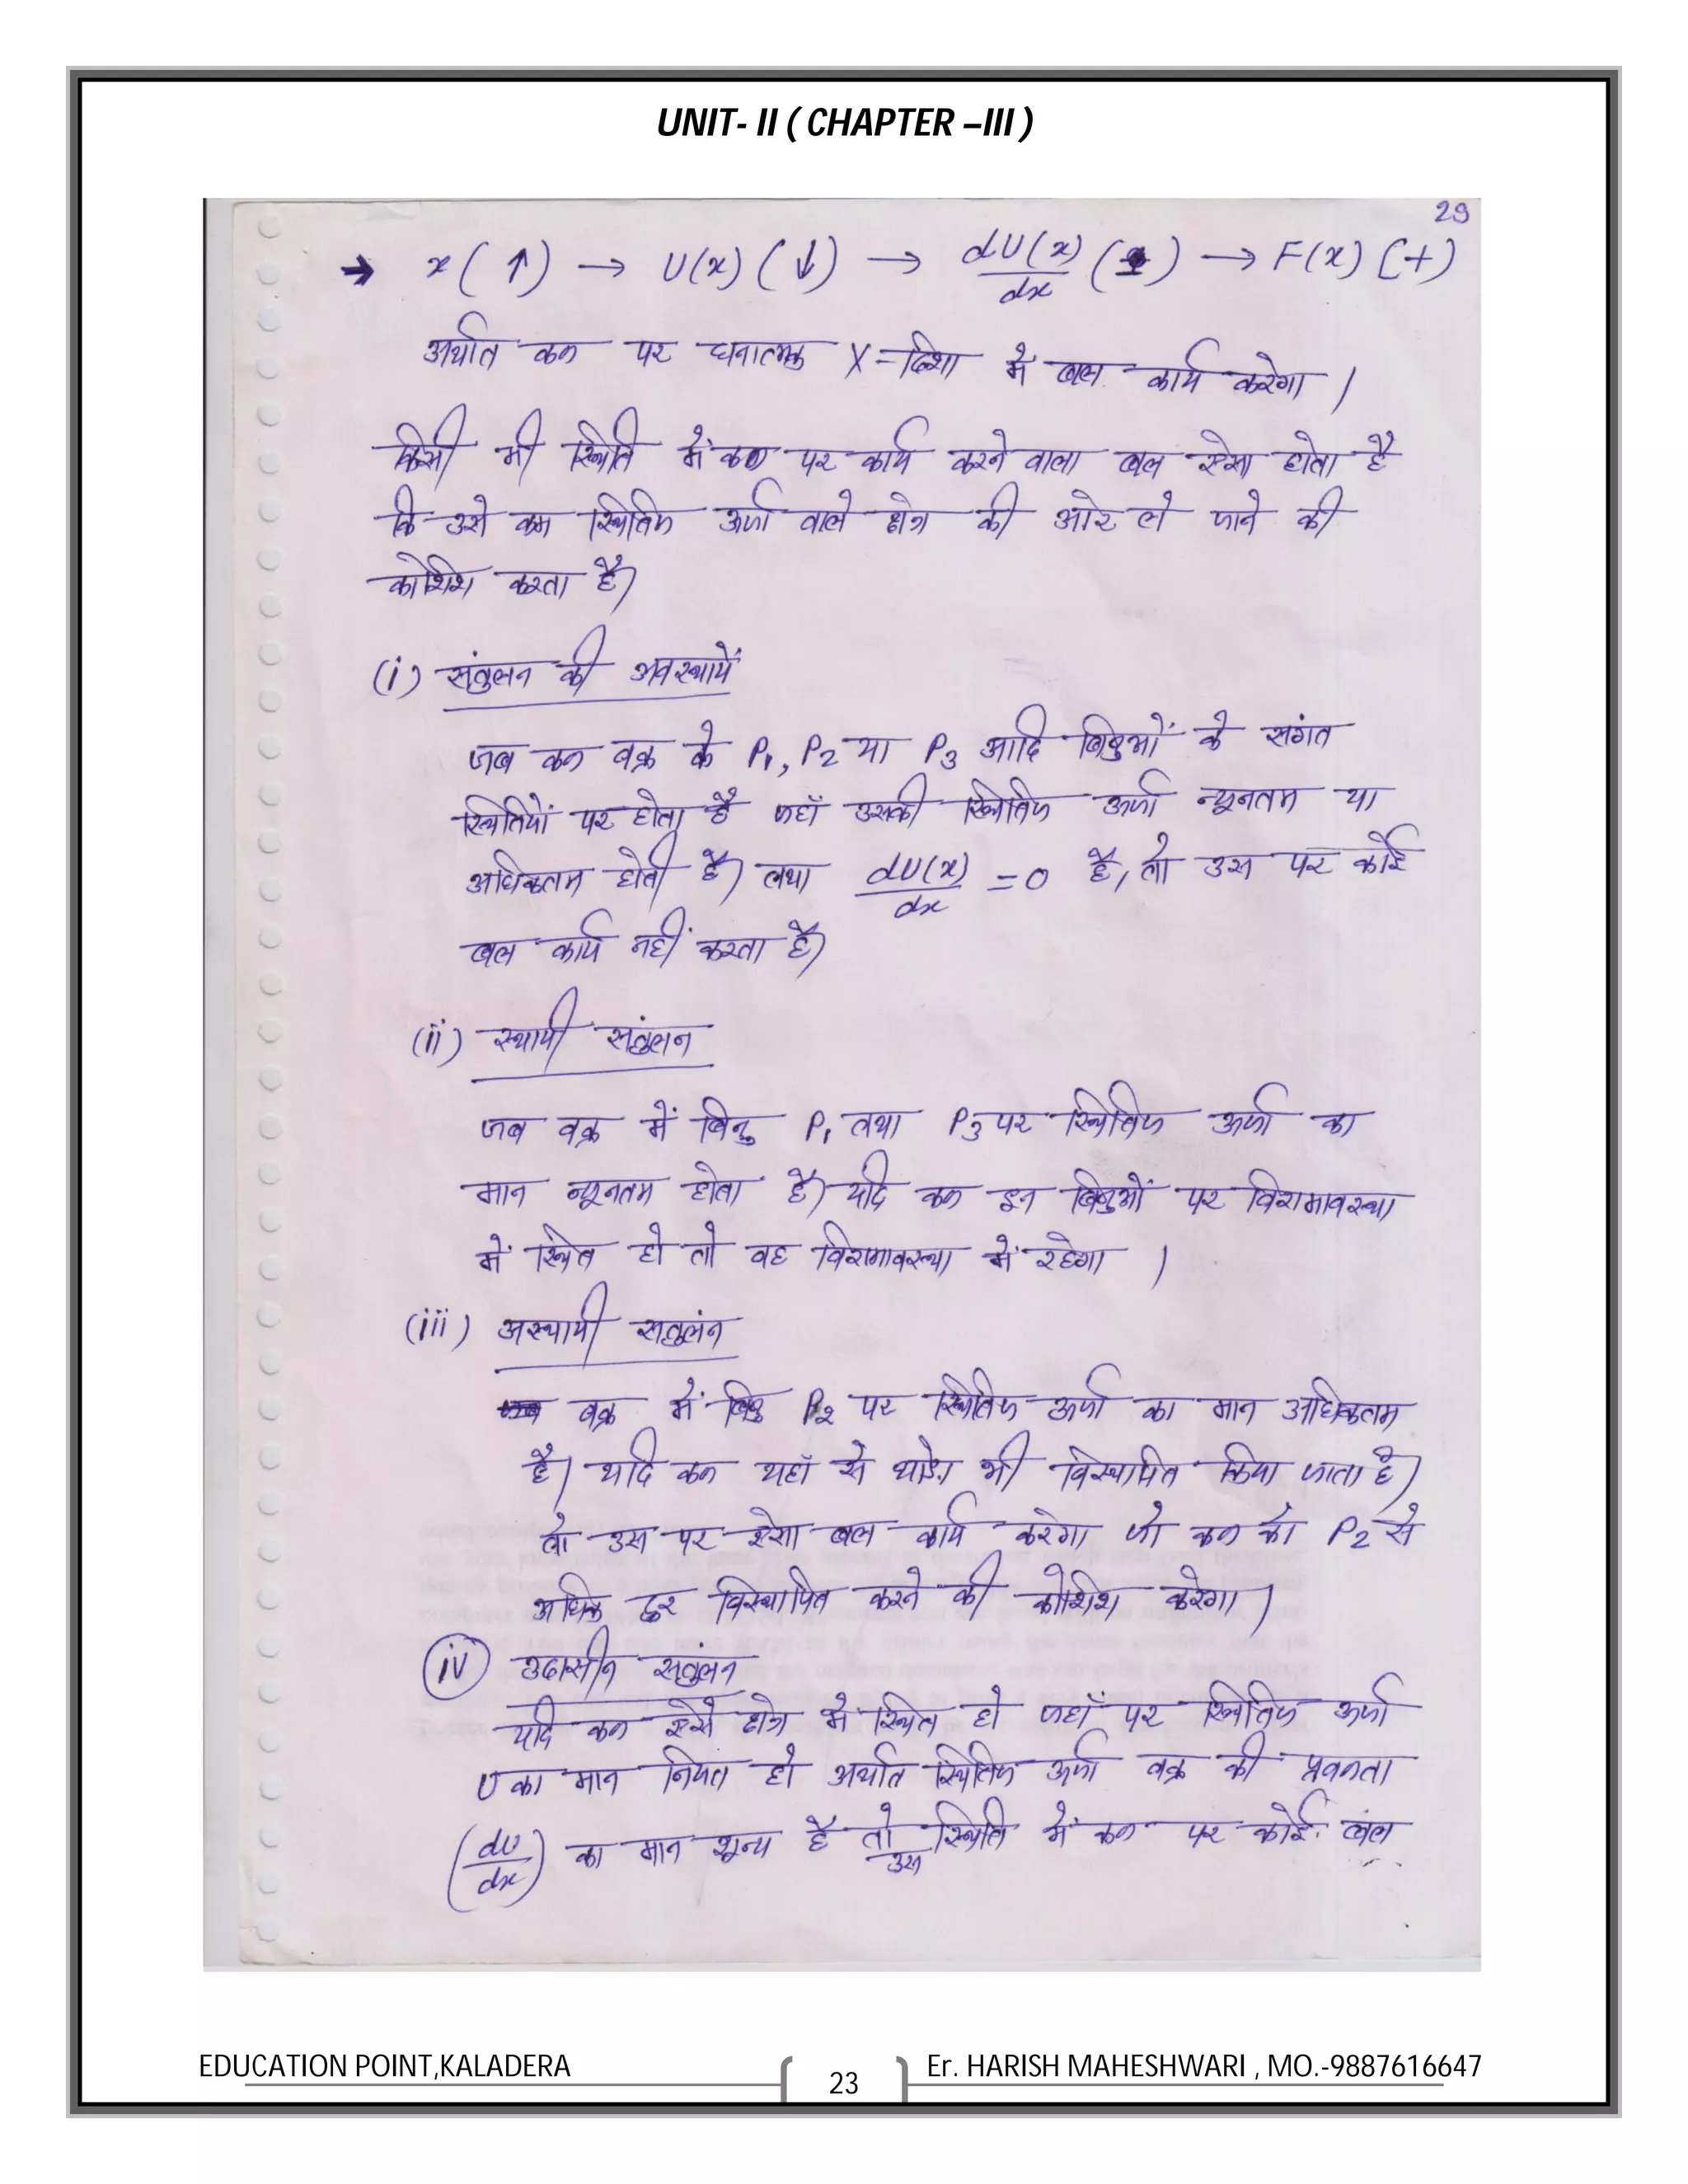 UNIT- II ( CHAPTER –III )
29
→ x(↑) → U(x)(↓) → dU(x)/dx ( ) → F(x)(+)
अर्थात कण पर धनात्मक X-दिशा में बल कार्य करेगा।
किसी भी स्थिति में कण पर कार्य करने वाला बल ऐसा होता है
कि उसे कम स्थितिज ऊर्जा वाले क्षेत्र की ओर ले जाने की
कोशिश करता है।
(i) संतुलन की अवस्थायें
जब कण वक्र के P1, P2 या P3 आदि बिन्दुओं के संगत
स्थितियों पर होता है जहाँ उसकी स्थितिज ऊर्जा न्यूनतम या
अधिकतम होती है। तथा dU(x)/dx = 0 है, तो उस पर कोई
बल कार्य नहीं करता है।
(ii) स्थायी संतुलन
जब वक्र में बिन्दु P1 तथा P3 पर स्थितिज ऊर्जा का
मान न्यूनतम होता है। यदि कण इन बिन्दुओं पर विरामावस्था
में स्थित हो तो वह विरामावस्था में रहेगा।
(iii) अस्थायी सतुलंन
वक्र में बिन्दु P2 पर स्थितिज ऊर्जा का मान अधिकतम
है। यदि कण यहाँ से थोड़ा भी विस्थापित किया जाता है।
तो उस पर ऐसा बल कार्य करेगा जो कण को P2 से
अधिक दूर विस्थापित करने की कोशिश करेगा।
(iv) उदासीन संतुलन
यदि कण ऐसे क्षेत्र में स्थित हो जहाँ पर स्थितिज ऊर्जा
U का मान नियत हो अर्थात स्थितिज ऊर्जा वक्र की प्रवणता
(dU/dx) का मान शून्य है तो उस स्थिति में कण पर कोई बल
EDUCATION POINT,KALADERA 23 Er. HARISH MAHESHWARI , MO.-9887616647